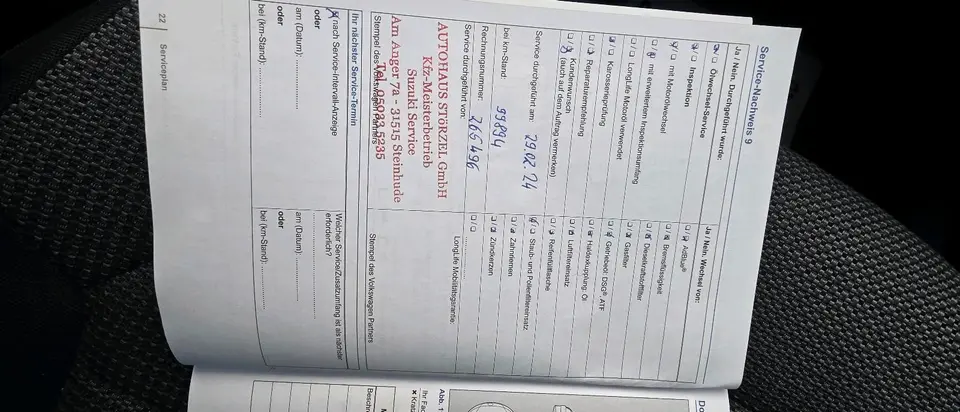 Service-Nachweis 9
Ja / Nein. Durchgeführt wurde:
Ölwechsel-Service
Inspektion
mit Motorölwechsel
mit erweitertem Inspektionsumfang
LongLife Motoröl verwendet
Karosserieprüfung
Reparaturempfehlung
Kundenwunsch
(auch auf dem Auftrag vermerken)
Service durchgeführt am: 29.02.24
bei km-Stand: 99894
Rechnungsnummer: 266496
Service durchgeführt von:
AUTOHAUS STÖRZEL GmbH
Kfz-Meisterbetrieb
Suzuki Service
Am Anger 7a - 31515 Steinhude
Tel. 05033 5235
Stempel des Volkswagen Partners
Ja / Nein. Wechsel von:
AdBlue®
Bremsflüssigkeit
Dieselkraftstofffilter
Gasfilter
Getriebeöl: DSG®, ATF
Haldexkupplung: Öl
Luftfiltereinsatz
Reifenfüllflasche
Staub- und Pollenfiltereinsatz
Zahnriemen
Zündkerzen
LongLife Mobilitätsgarantie
Stempel des Volkswagen Partners
Ihr nächster Service-Termin
nach Service-Intervall-Anzeige
oder
am (Datum):
oder
bei (km-Stand):
Welcher Service/Zusatzumfang ist als nächster
erforderlich?
am (Datum):
oder
bei (km-Stand):
22 Serviceplan
Abb. 1